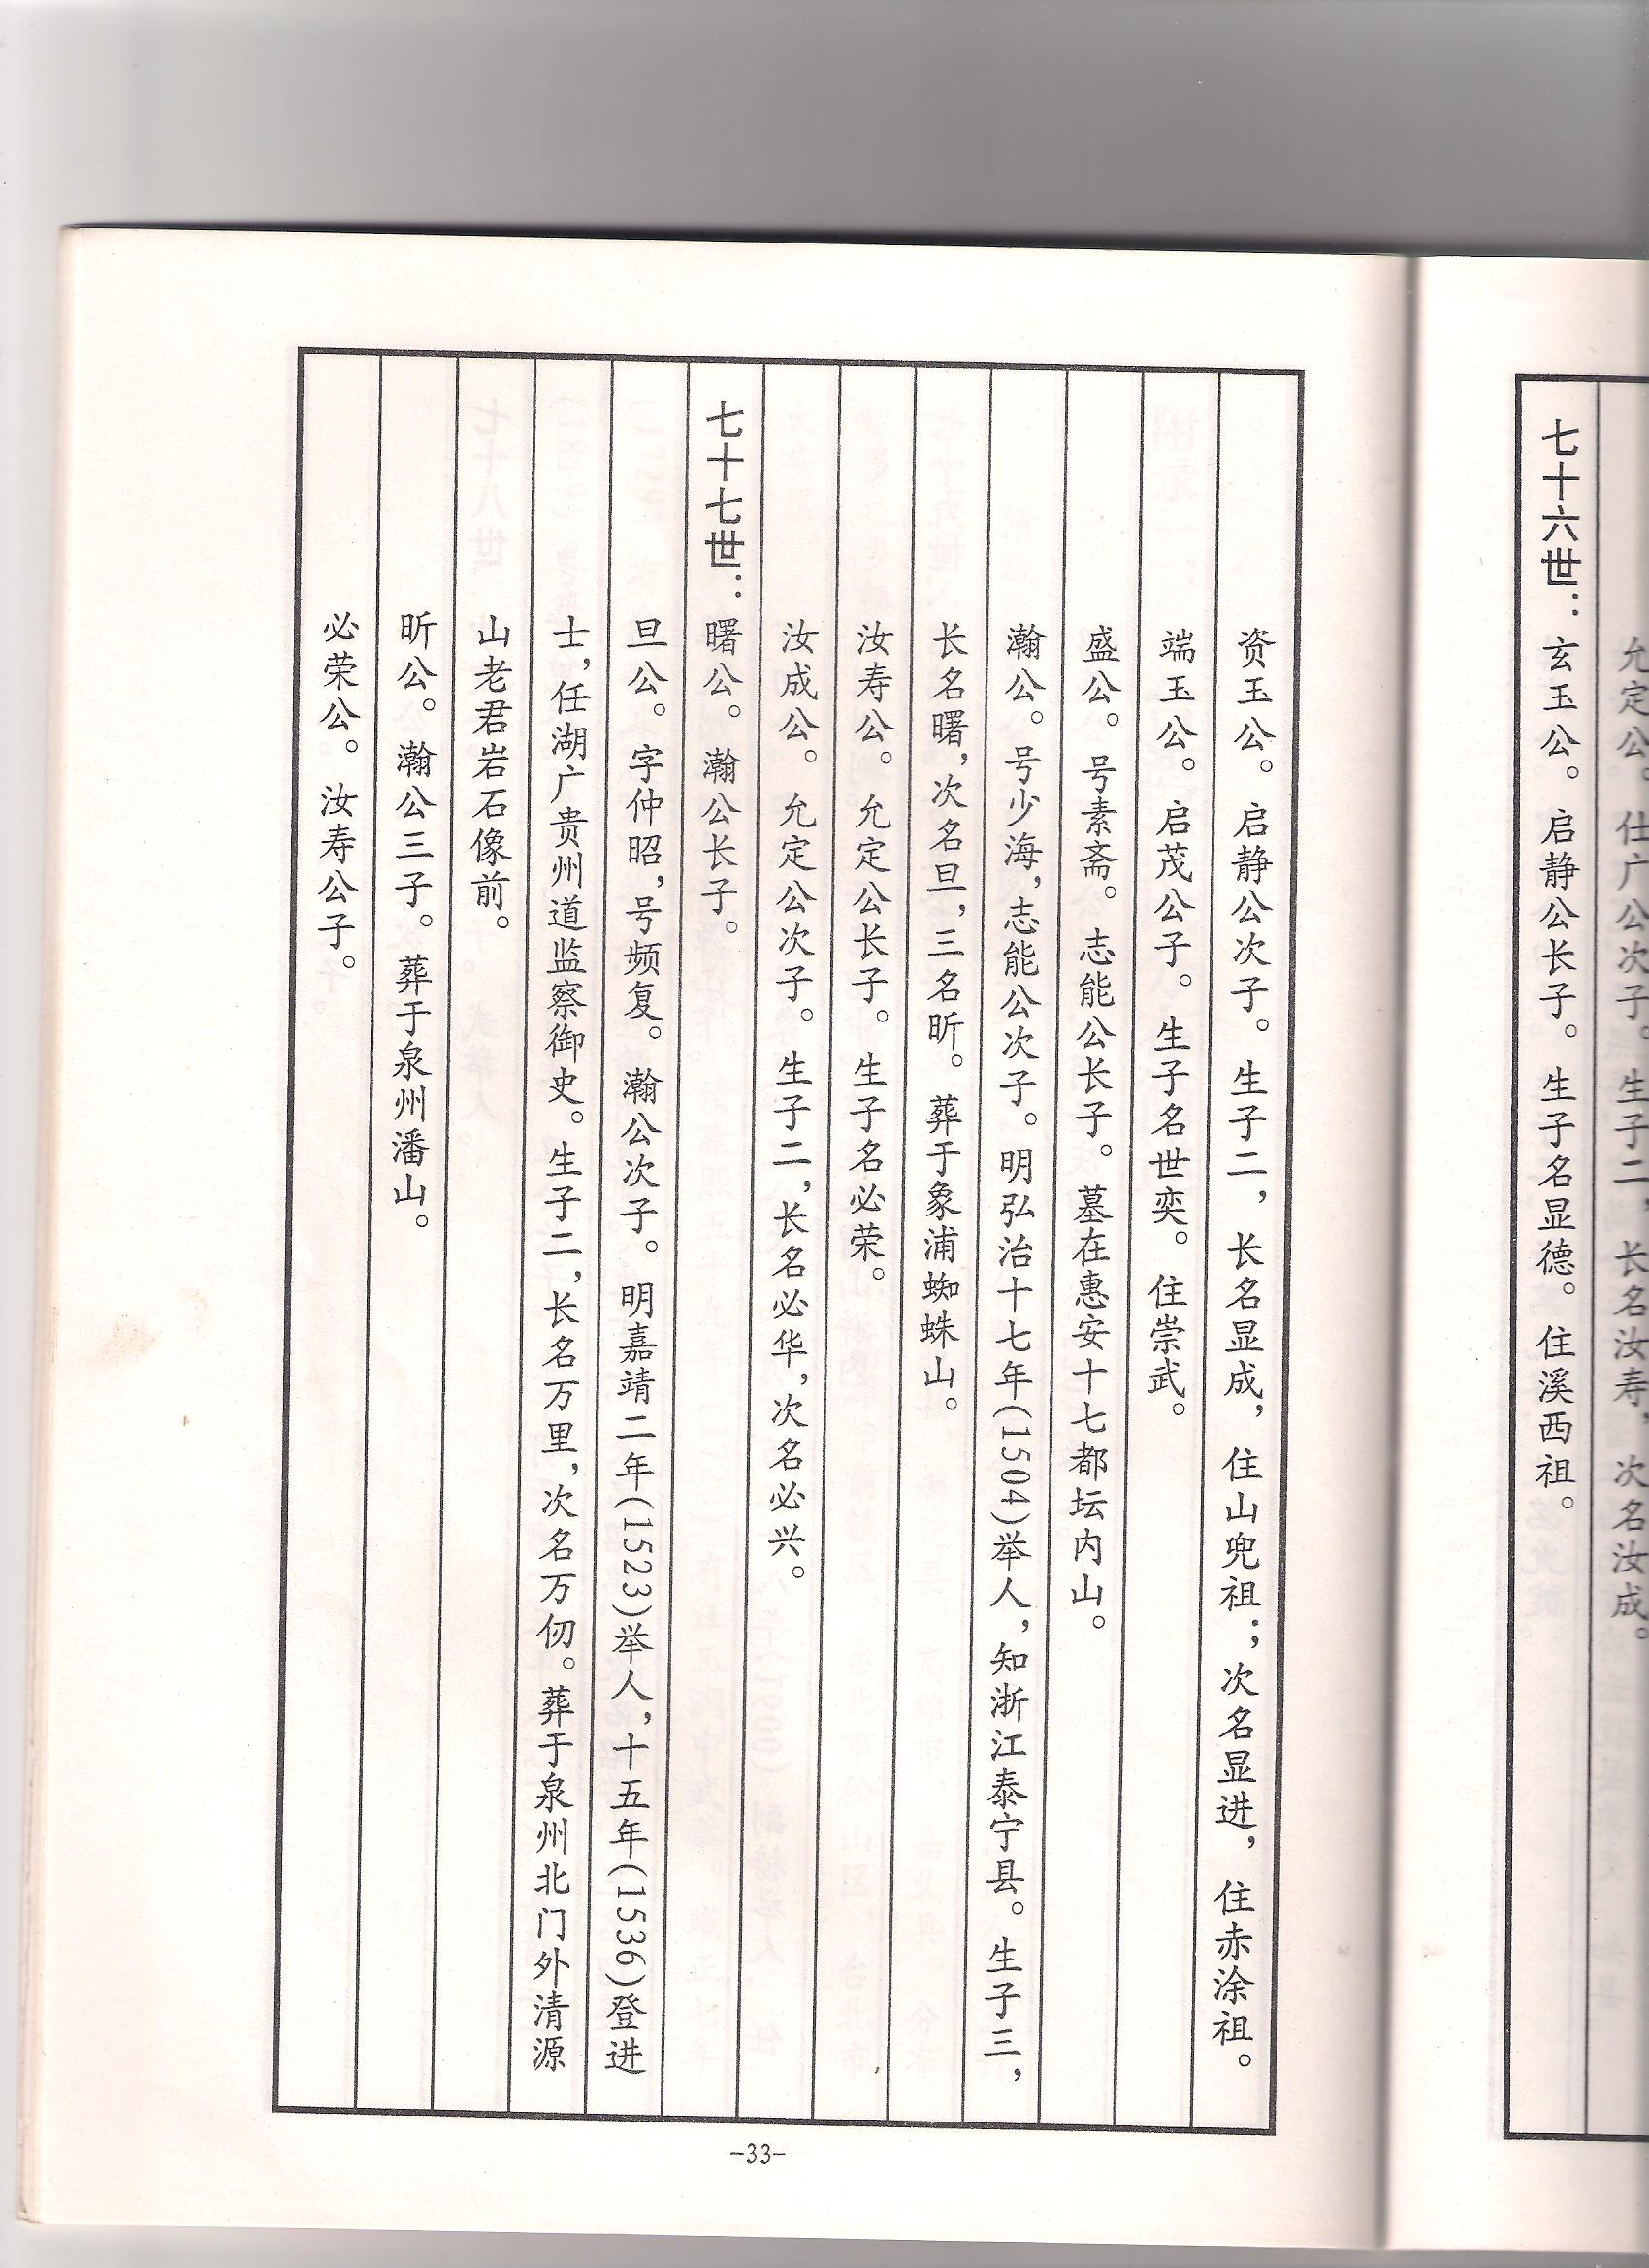 允定公。仕广公次子。生子二，长名汝寿，次名汝成。
七十六世：玄玉公。启静公长子。生子名显德。住溪西祖。
资玉公。启静公次子。生子二，长名显成，住山兜祖；次名显进，住赤涂祖。
端玉公。启茂公子。生子名世奕。住崇武。
盛公。号素斋。志能公长子。墓在惠安十七都坛内山。
瀚公。号少海，志能公次子。明弘治十七年(1504)举人，知浙江泰宁县。生子三，
长名曙，次名旦，三名昕。葬于象浦蜘蛛山。
汝寿公。允定公长子。生子名必荣。
汝成公。允定公次子。生子二，长名必华，次名必兴。
七十七世：曙公。瀚公长子。
旦公。字仲昭，号频复。瀚公次子。明嘉靖二年(1523)举人，十五年(1536)登进
士，任湖广贵州道监察御史。生子二，长名万里，次名万仞。葬于泉州北门外清源
山老君岩石像前。
昕公。瀚公三子。葬于泉州潘山。
必荣公。汝寿公子。
-33-